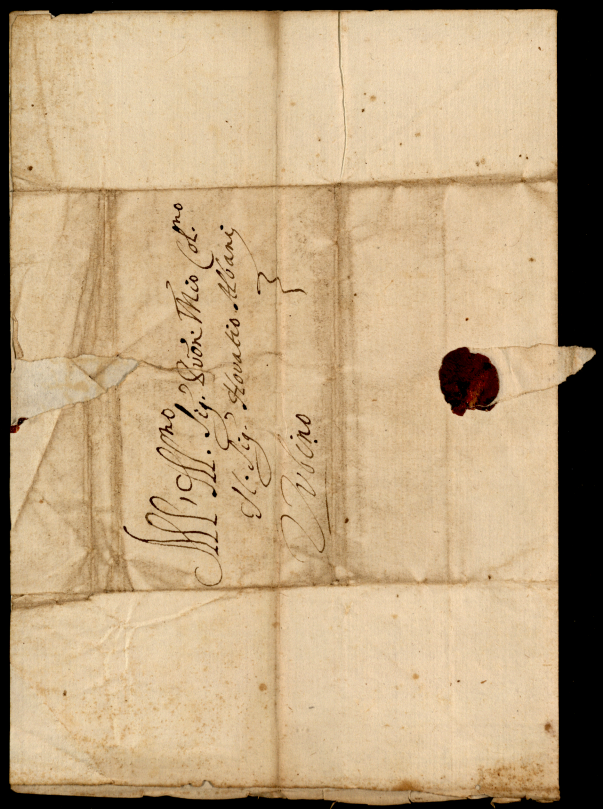 All' Ill.mo Sig. Pron. Mio Col.mo
Il Sig. Horatio Albani
Urbino